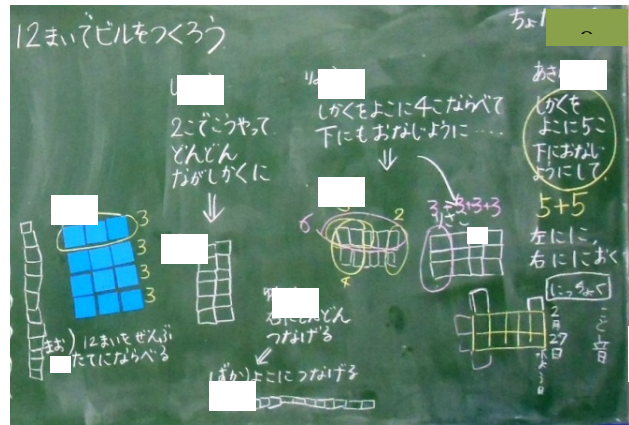 12まいでビルをつくろう
2こでこうやって
どんどん
ながしかくに
しかくをよこに4こならべて
下にもおなじように……
しかくを
よこに5こ
下におなじ
ようにして
5+5
左に1こ、
右に1こおく
3
3
3
3
6
2
4
3+3+3
まお)12まいをぜんぶ
たてにならべる
どんどん
つなげる
よこにつなげる
にっちょく
2月27日